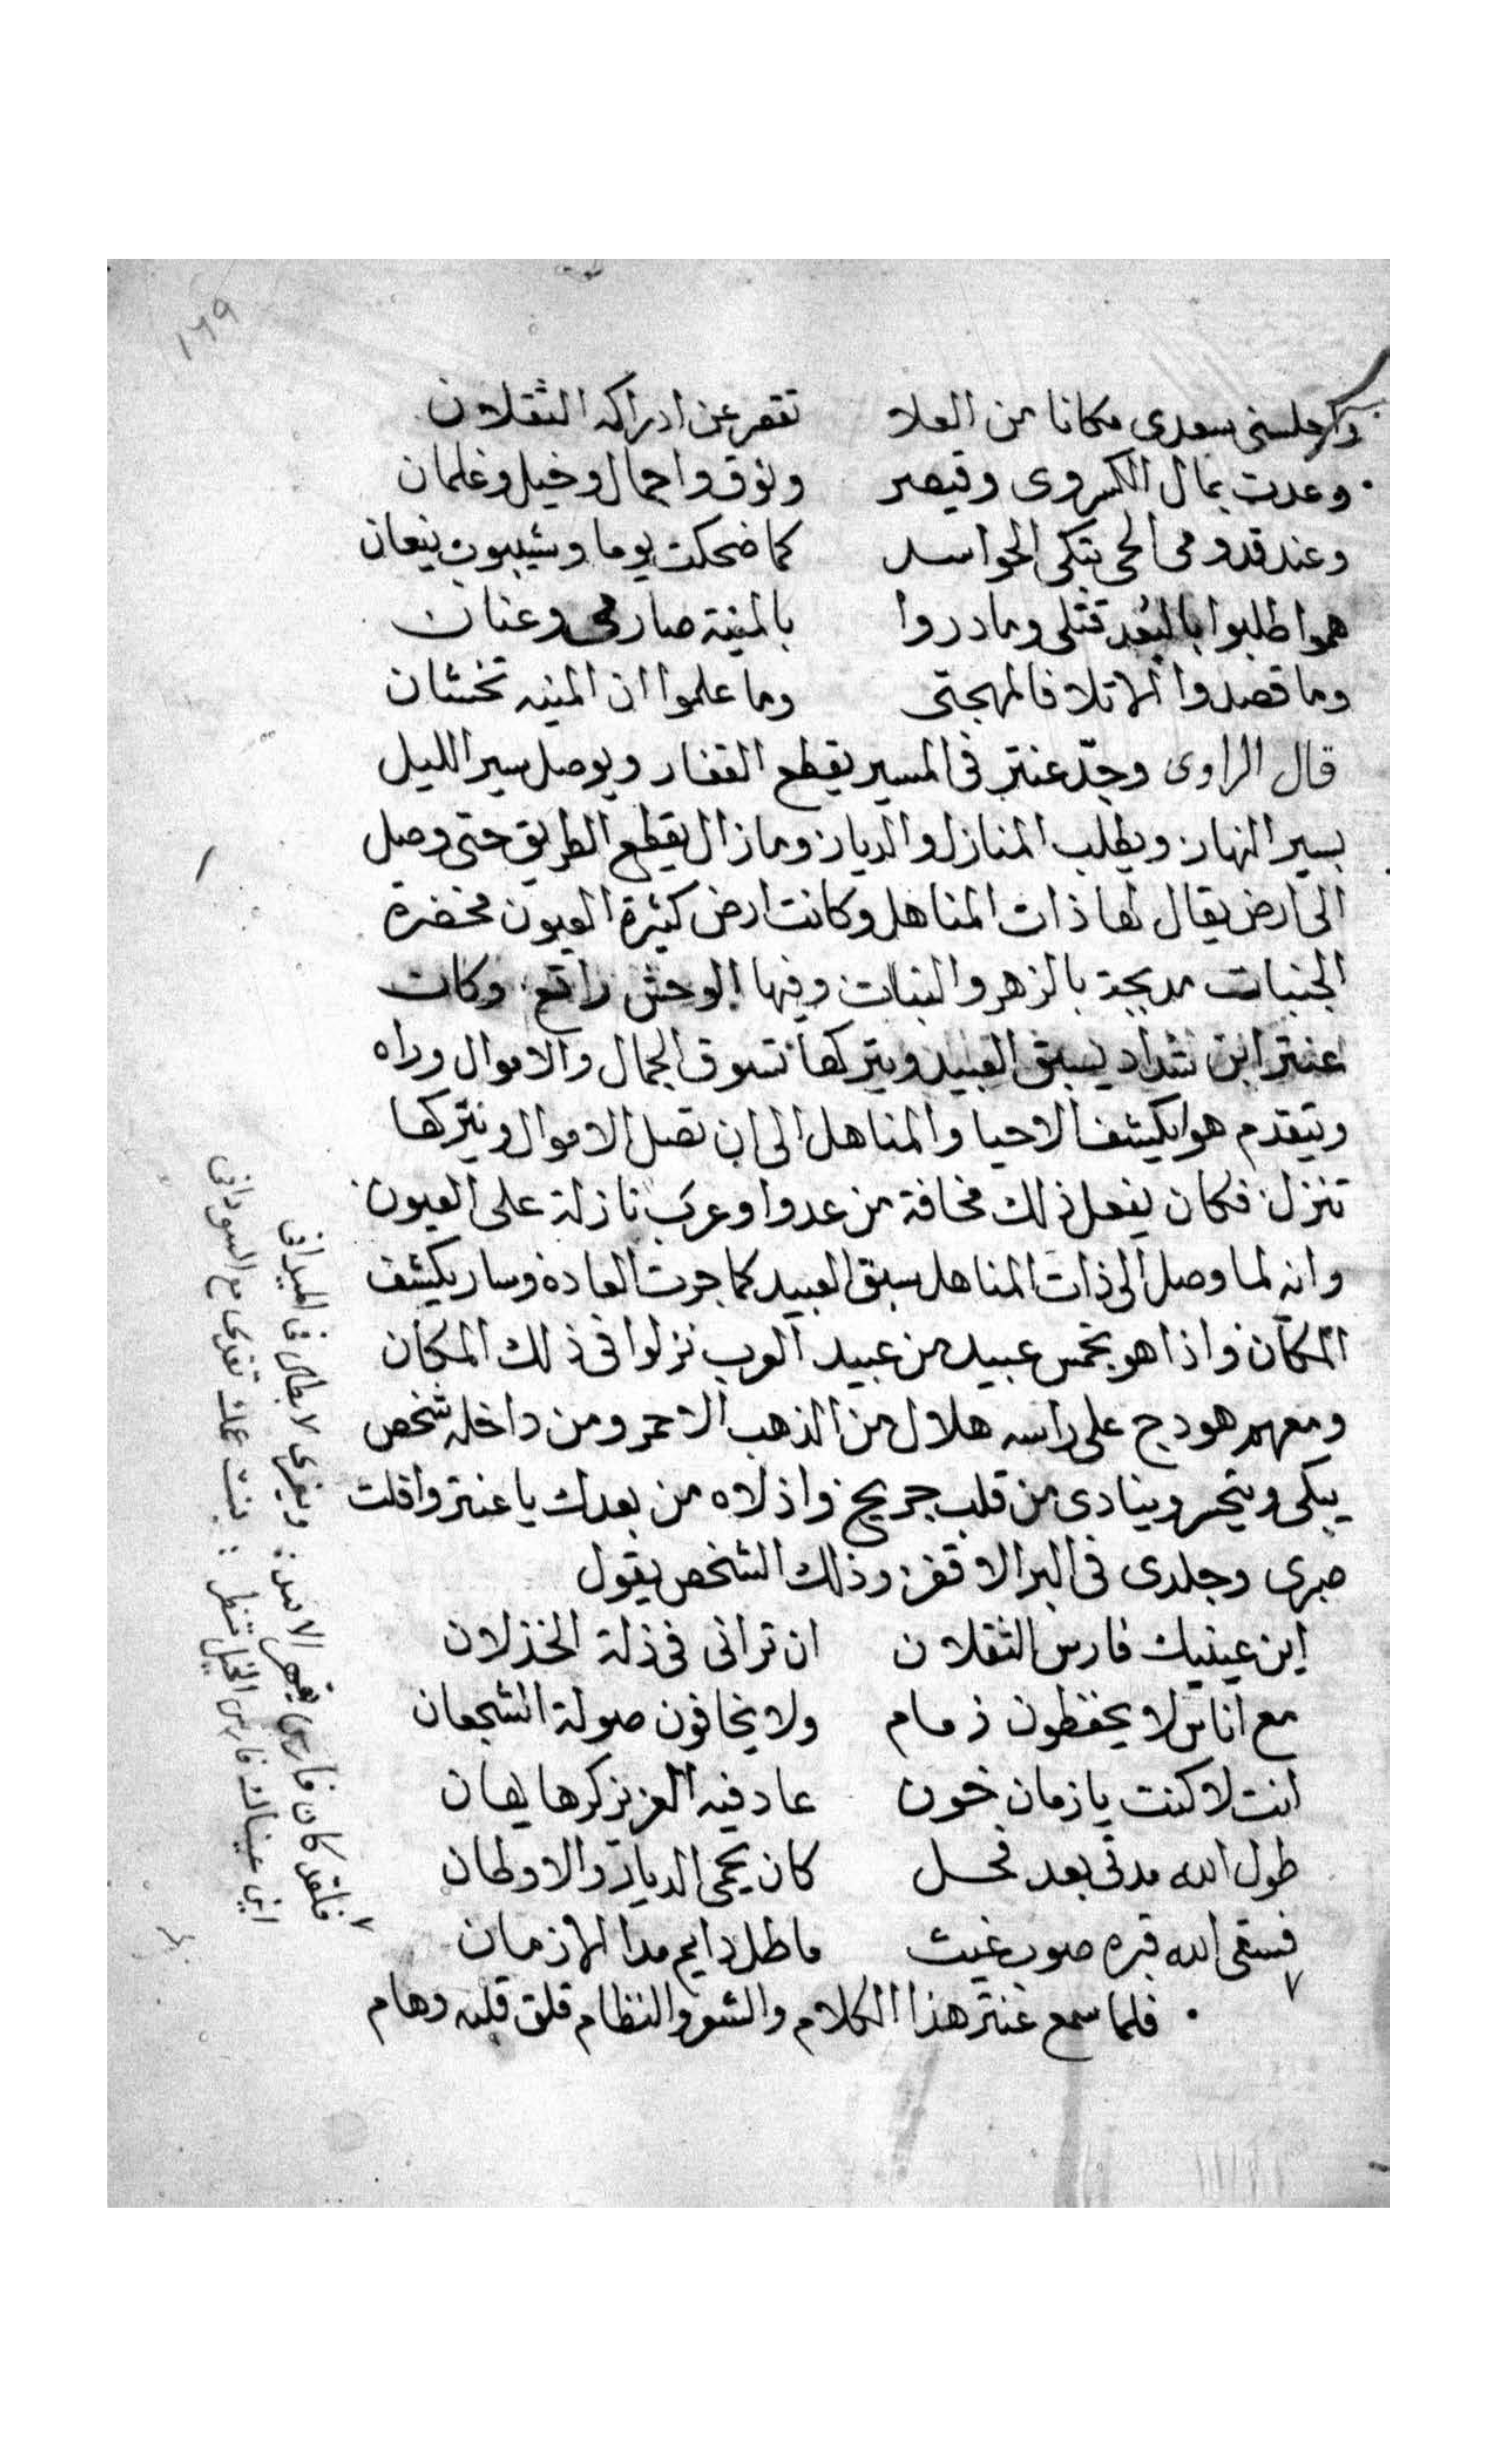 ١٦٩
وكم اجلسنى سعدى مكانا من العلا تقصر عن ادراكه الثقلان
وعدت بمال الكسروى وقيصر ونوق واجمال وخيل وغلمان
وعند قدومى الحى بتكى الحواسد كما ضحكت يوما وشيبوب ينعان
هموا طلبوا بالبعد قتلى وما دروا بالمنية صارمى وعنان
وما قصدوا الا تلاف المهجتى وما علموا ان المنيه تخشان
قال الراوى وجدّ عنتر فى المسير يقطع القفار ويوصل سير الليل
بسير النهار ويطلب المنازل والديار وما زال يقطع الطريق حتى وصل
الى ارض يقال لها ذات المناهل وكانت ارض كثيرة العيون مخضرة
الجنبات مدبجة بالزهر والنبات وفيها الوحش راتع وكان
عنتر ابن شداد يسبق العبيد ويتركها تسوق الجمال والاموال وراه
ويتقدم هو ايكشف الاحيا والمناهل الى ان تصل الاموال ويتركها
تنزل فكان يفعل ذلك مخافة من عدوا وعرب نازلة على العيون
وانه لما وصل الى ذات المناهل سبق العبيد كما جرت العاده وسار يكشف
المكان واذا هو بخمس عبيد من عبيد العرب نزلوا فى ذلك المكان
ومعهم هودج على راسه هلال من الذهب الاحمر ومن داخله شخص
يبكى ويتحسر وينادى من قلب جريح واذلاه من بعدك يا عنتر واقلت
صبرى وجلدى فى البر الاقفر وذلك الشخص يقول
اين عينيك فارس الثقلان ان ترانى فى ذلة الخذلان
مع اناس لا يحفظون ذمام ولا يخافون صولة الشجعان
انت لا كنت يا زمان خون عاد فيه العزيز كرها يهان
طول الله مدتى بعد فحل كان يحمى الديار والاوطان
فسقى الله قبره صوب غيث ما طل دايم مدا الازمان
فلما سمع عنتر هذا الكلام والشعر والنظام قلق قلبه وهام
فلقد كان فارسى يقهر الاسد ويغرى الابطال فى الميدانى
اين عيناك فارس الخيل تنظر بنت عمك تغدى مع السودانى